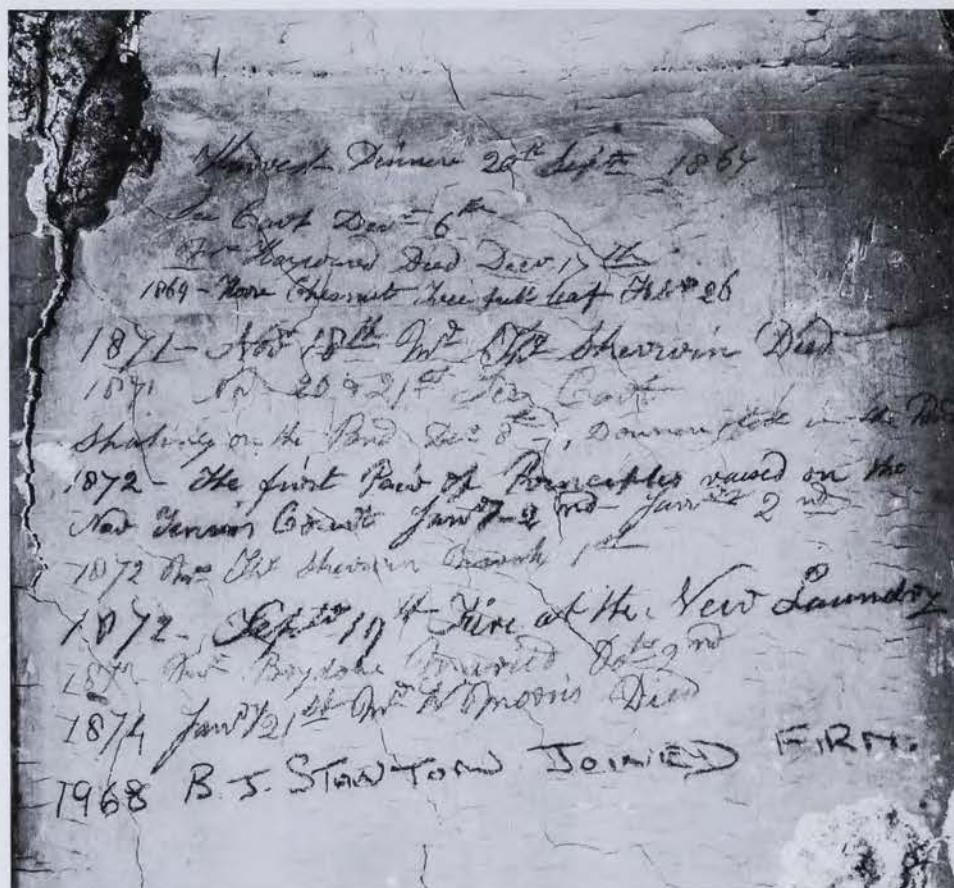 Harvest Dinner 20th Septr 1864
Ice Cart Decr 6th
Haywood Died Decr 17th
1869 - Horse Chesnut Tree full leaf Feby 26
1871 - Novr 18th Mr Sherwin Died
1871 Nr 20 & 21st Ice Cart
Skating on the Pond Decr 8th, in the
1872 - The first Pair of Principles raised on the
New Tennis Court Jany 2nd Jany 2nd
1872 Mrs Thos Sherwin 1st
1872 - Septr 19th Fire at the New Laundry
Married Octr 2nd
1874 Jany 21st Mr W Morris Died
1968 B. J. STANTON JOINED FIRM.